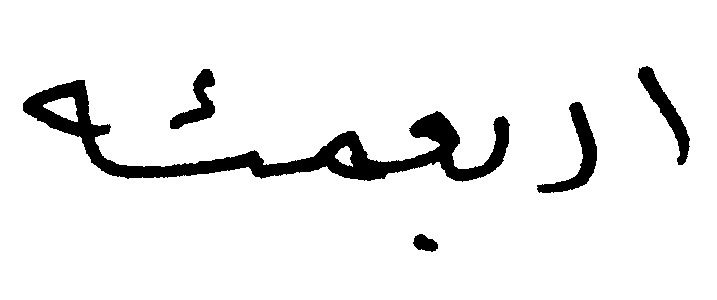 اربعمئه